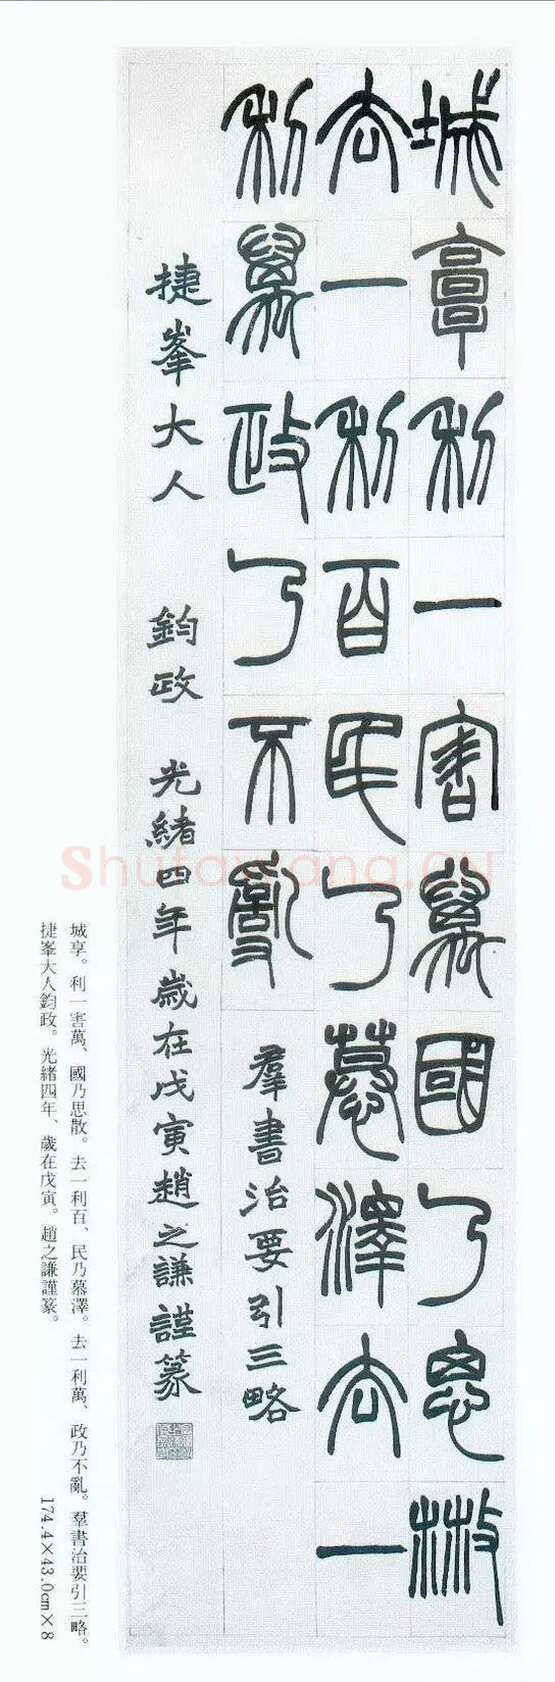 城享利一害萬國乃思散
去一利百民乃慕澤去一
利萬政乃不亂 羣書治要引三略
捷峯大人 鈞政 光緒四年歲在戊寅趙之謙謹篆
城享。利一害萬、國乃思散。去一利百、民乃慕澤。去一利萬、政乃不亂。羣書治要引三略。
捷峯大人鈞政。光緒四年、歲在戊寅。趙之謙謹篆。 174.4×43.0cm×8
Shufawang.CN